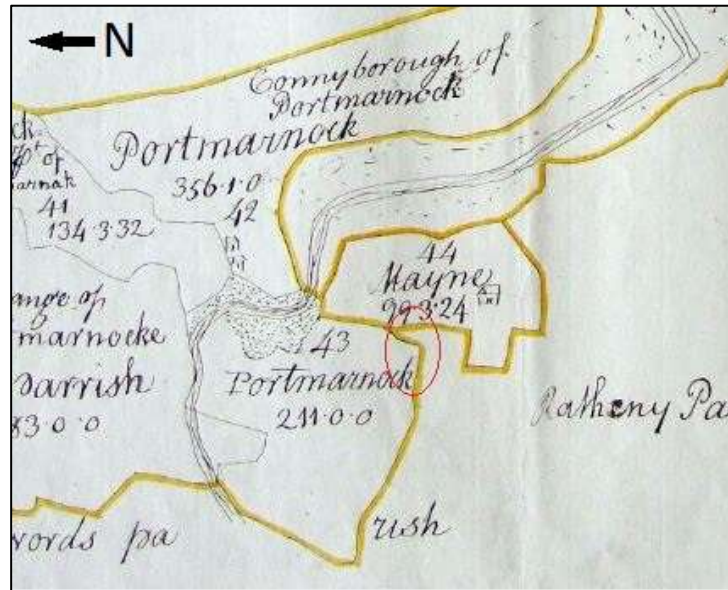 N
Connyborough of
Portmarnock
Portmarnock
356·1·0
42
ck
of
arnak
41
134·3·32
44
Mayne
99·3·24
ange of
tmarnocke
parrish
83·0·0
43
Portmarnock
211·0·0
Ratheny Pa
vords pa
rish